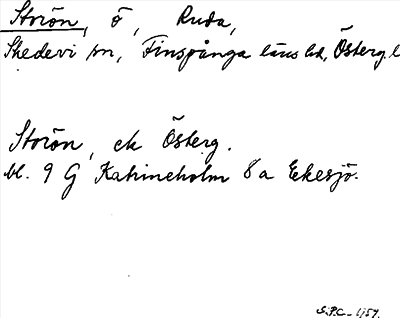 Storön, ö, Ruda,
Skedevi sn, Finspånga läns hd, Österg. l
Storön, ek Österg.
bl. 9 G Katrineholm 8a Ekesjö.
S.P.C. 1957.